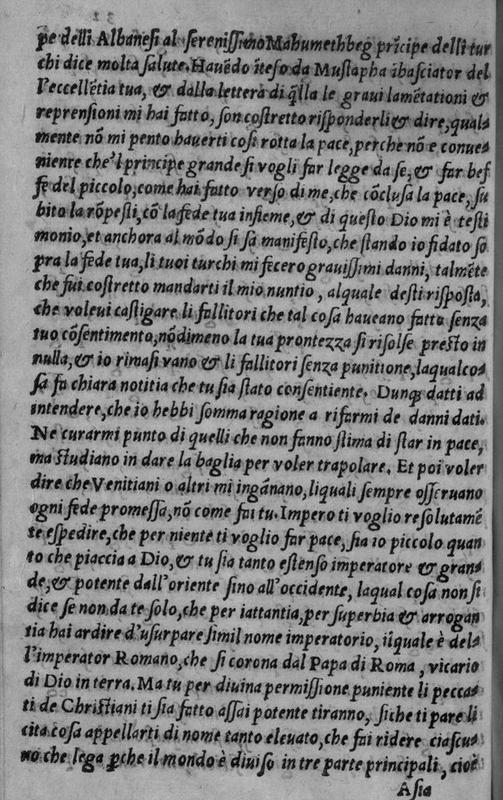 pe delli Albanesi al serenissimo Mahumethbeg prīcipe delli tur
chi dice molta salute. Hauēdo īteso da Mustapha ībasciator del
l'eccellētia tua, & dalla lettera di q̄lla le graui lamētationi &
reprensioni mi hai fatto, son costretto rispōderli & dire, qual⸗
mente nō mi pento hauerti cosi rotta la pace, perche nō e conue⸗
niente che'l principe grande si vogli far legge da se, & far bef
fe del piccolo, come hai fatto verso di me, che cōclusa la pace, su
bito la rōpesti, cō la fede tua insieme, & di questo Dio mi è testi
monio, et anchora al mōdo si sa manifesto, che stando io fidato so
pra la fede tua, li tuoi turchi mi fecero grauissimi danni, talmēte
che fui costretto mandarti il mio nuntio, al quale desti risposta,
che voleui castigare li fallitori che tal cosa haueano fatto senza
tuo cōsentimento, nōdimeno la tua prontezza si risolse presto in
nulla, & io rimasi vano & li fallitori senza punitione, laqualco⸗
sa fa chiara notitia che tu sia stato consentiente. Dunq; datti ad
intendere, che io hebbi somma ragione a rifarmi de danni dati.
Ne curarmi punto di quelli che non fanno stima di star in pace,
ma studiano in dare la baglia per voler trapolare. Et poi voler
dire che Venitiani o altri mi ingānano, liquali sempre osseruano
ogni fede promessa, nō come fai tu. Impero ti voglio resolutamē
te espedire, che per niente ti voglio far pace, sia io piccolo quan
to che piaccia a Dio, & tu sia tanto estenso imperatore & gran⸗
de, & potente dall'oriente sino all'occidente, laqual cosa non si
dice se non da te solo, che per iattantia, per superbia & arrogan
tia hai ardire d'usurpare simil nome imperatorio, ilquale è del⸗
l'imperator Romano, che si corona dal Papa di Roma, vicario
di Dio in terra. Ma tu per diuina permissione puniente li pecca⸗
ti de Christiani ti sia fatto assai potente tiranno, siche ti pare li
cita cosa appellarti di nome tanto eleuato, che fai ridere ciascu⸗
no che lega ꝑche il mondo è diuiso in tre parte principali, cioè
Asia